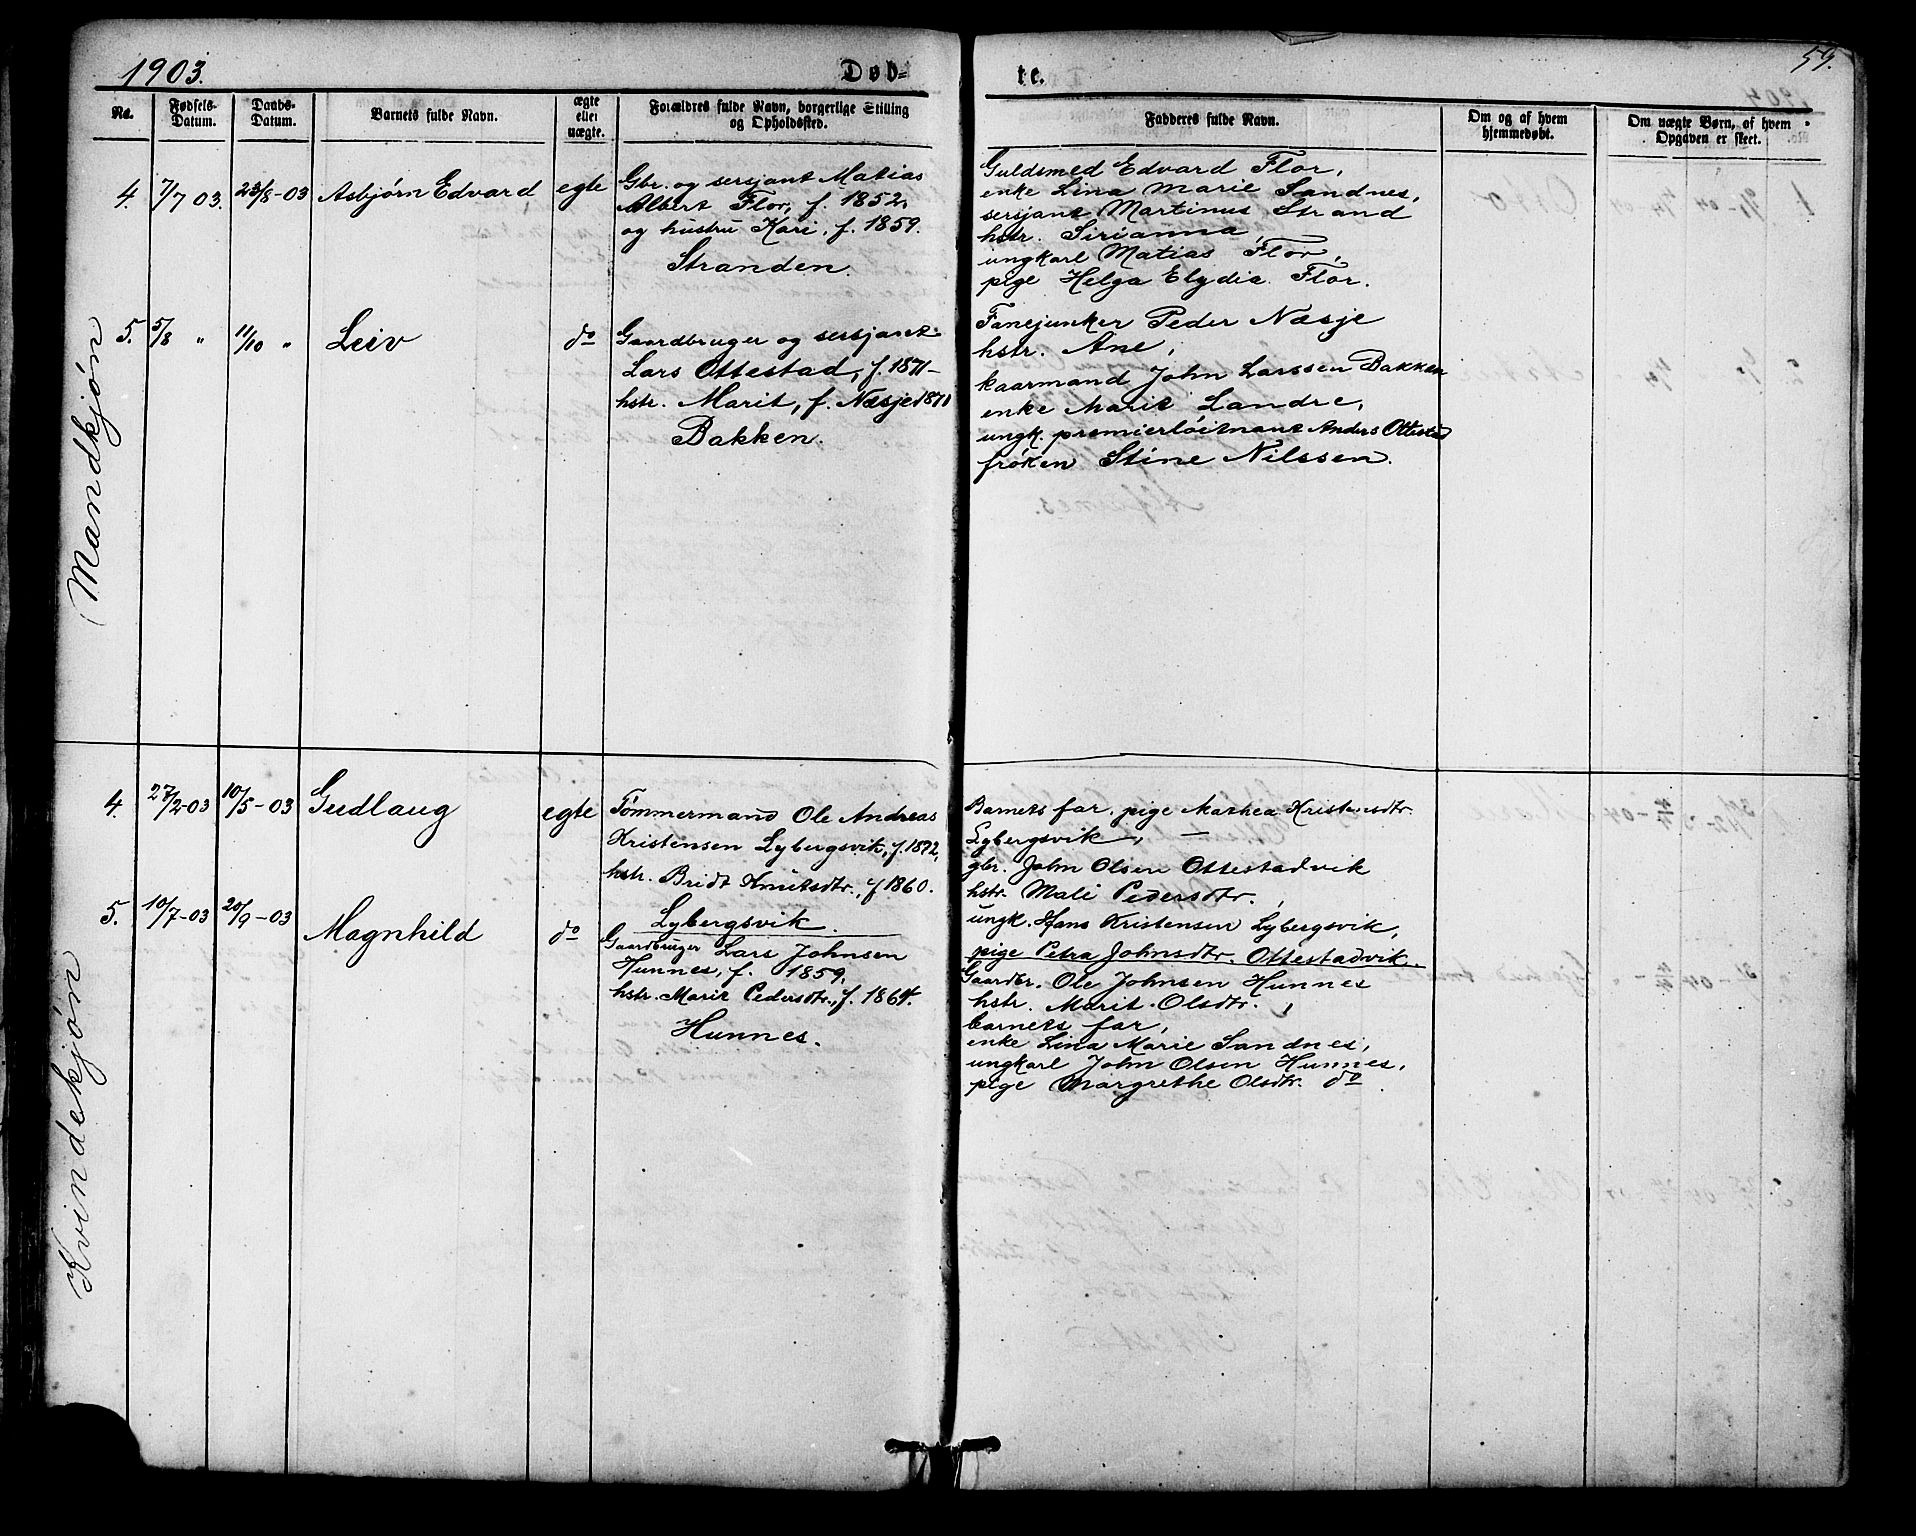 1903.
Døb-
te.
59.
No.
Fødsels-
Datum.
Daabs-
Datum.
Barnets fulde Navn.
ægte
eller
uægte.
Forældres fulde Navn, borgerlige Stilling
og Opholdssted.
Fadderes fulde Navn.
Om og af hvem
hjemmedøbt.
Om uægte Børn, af hvem
Opgaven er skeet.
Mandkjøn
4. 7/7 03. 23/8-03 Asbjørn Edvard egte
Gbr. og sersjant Matias
Albert Flor, f. 1852,
og hustru Kari, f. 1859.
Stranden.
Guldsmed Edvard Flor,
enke Lina Marie Sandnes,
sersjant Martinus Strand
hstr. Sirianna,
ungkarl Matias Flor,
pige Helga Elydia Flor.
5. 5/8 " 11/10 " Leiv do
Gaardbruger og sersjant
Lars Ottestad, f. 1871-
hstr. Marit, f. Næsje 1871
Bakken.
Fanejunker Peder Næsje
hstr. Ane,
kaarmand John Larssen Bakken
enke Marit Landre,
ungk. premierløitnant Anders Ottestad
frøken Stine Nilssen.
Kvindekjøn
4. 27/2-03 10/5-03 Gudlaug egte
Tømmermand Ole Andreas
Kristensen Lybergsvik, f. 1872,
hstr. Bridt Knutsdtr., f 1860.
Lybergsvik.
Barnets far, pige Mathea Kristensdtr.
Lybergsvik,
gbr. John Olsen Ottestadvik
hstr. Mali Pedersdtr.,
ungk. Hans Kristensen Lybergsvik,
pige Petra Johnsdtr. Ottestadvik.
5. 10/7-03 20/9-03 Magnhild do
Gaardbruger Lars Johnsen
Hunnes, f. 1859,
hstr. Marit Pedersdtr., f. 1864.
Hunnes.
Gaardbr. Ole Johnsen Hunnes
hstr. Marit Olsdtr.,
barnets far,
enke Lina Marie Sandnes,
ungkarl John Olsen Hunnes,
pige Margrethe Olsdtr. do